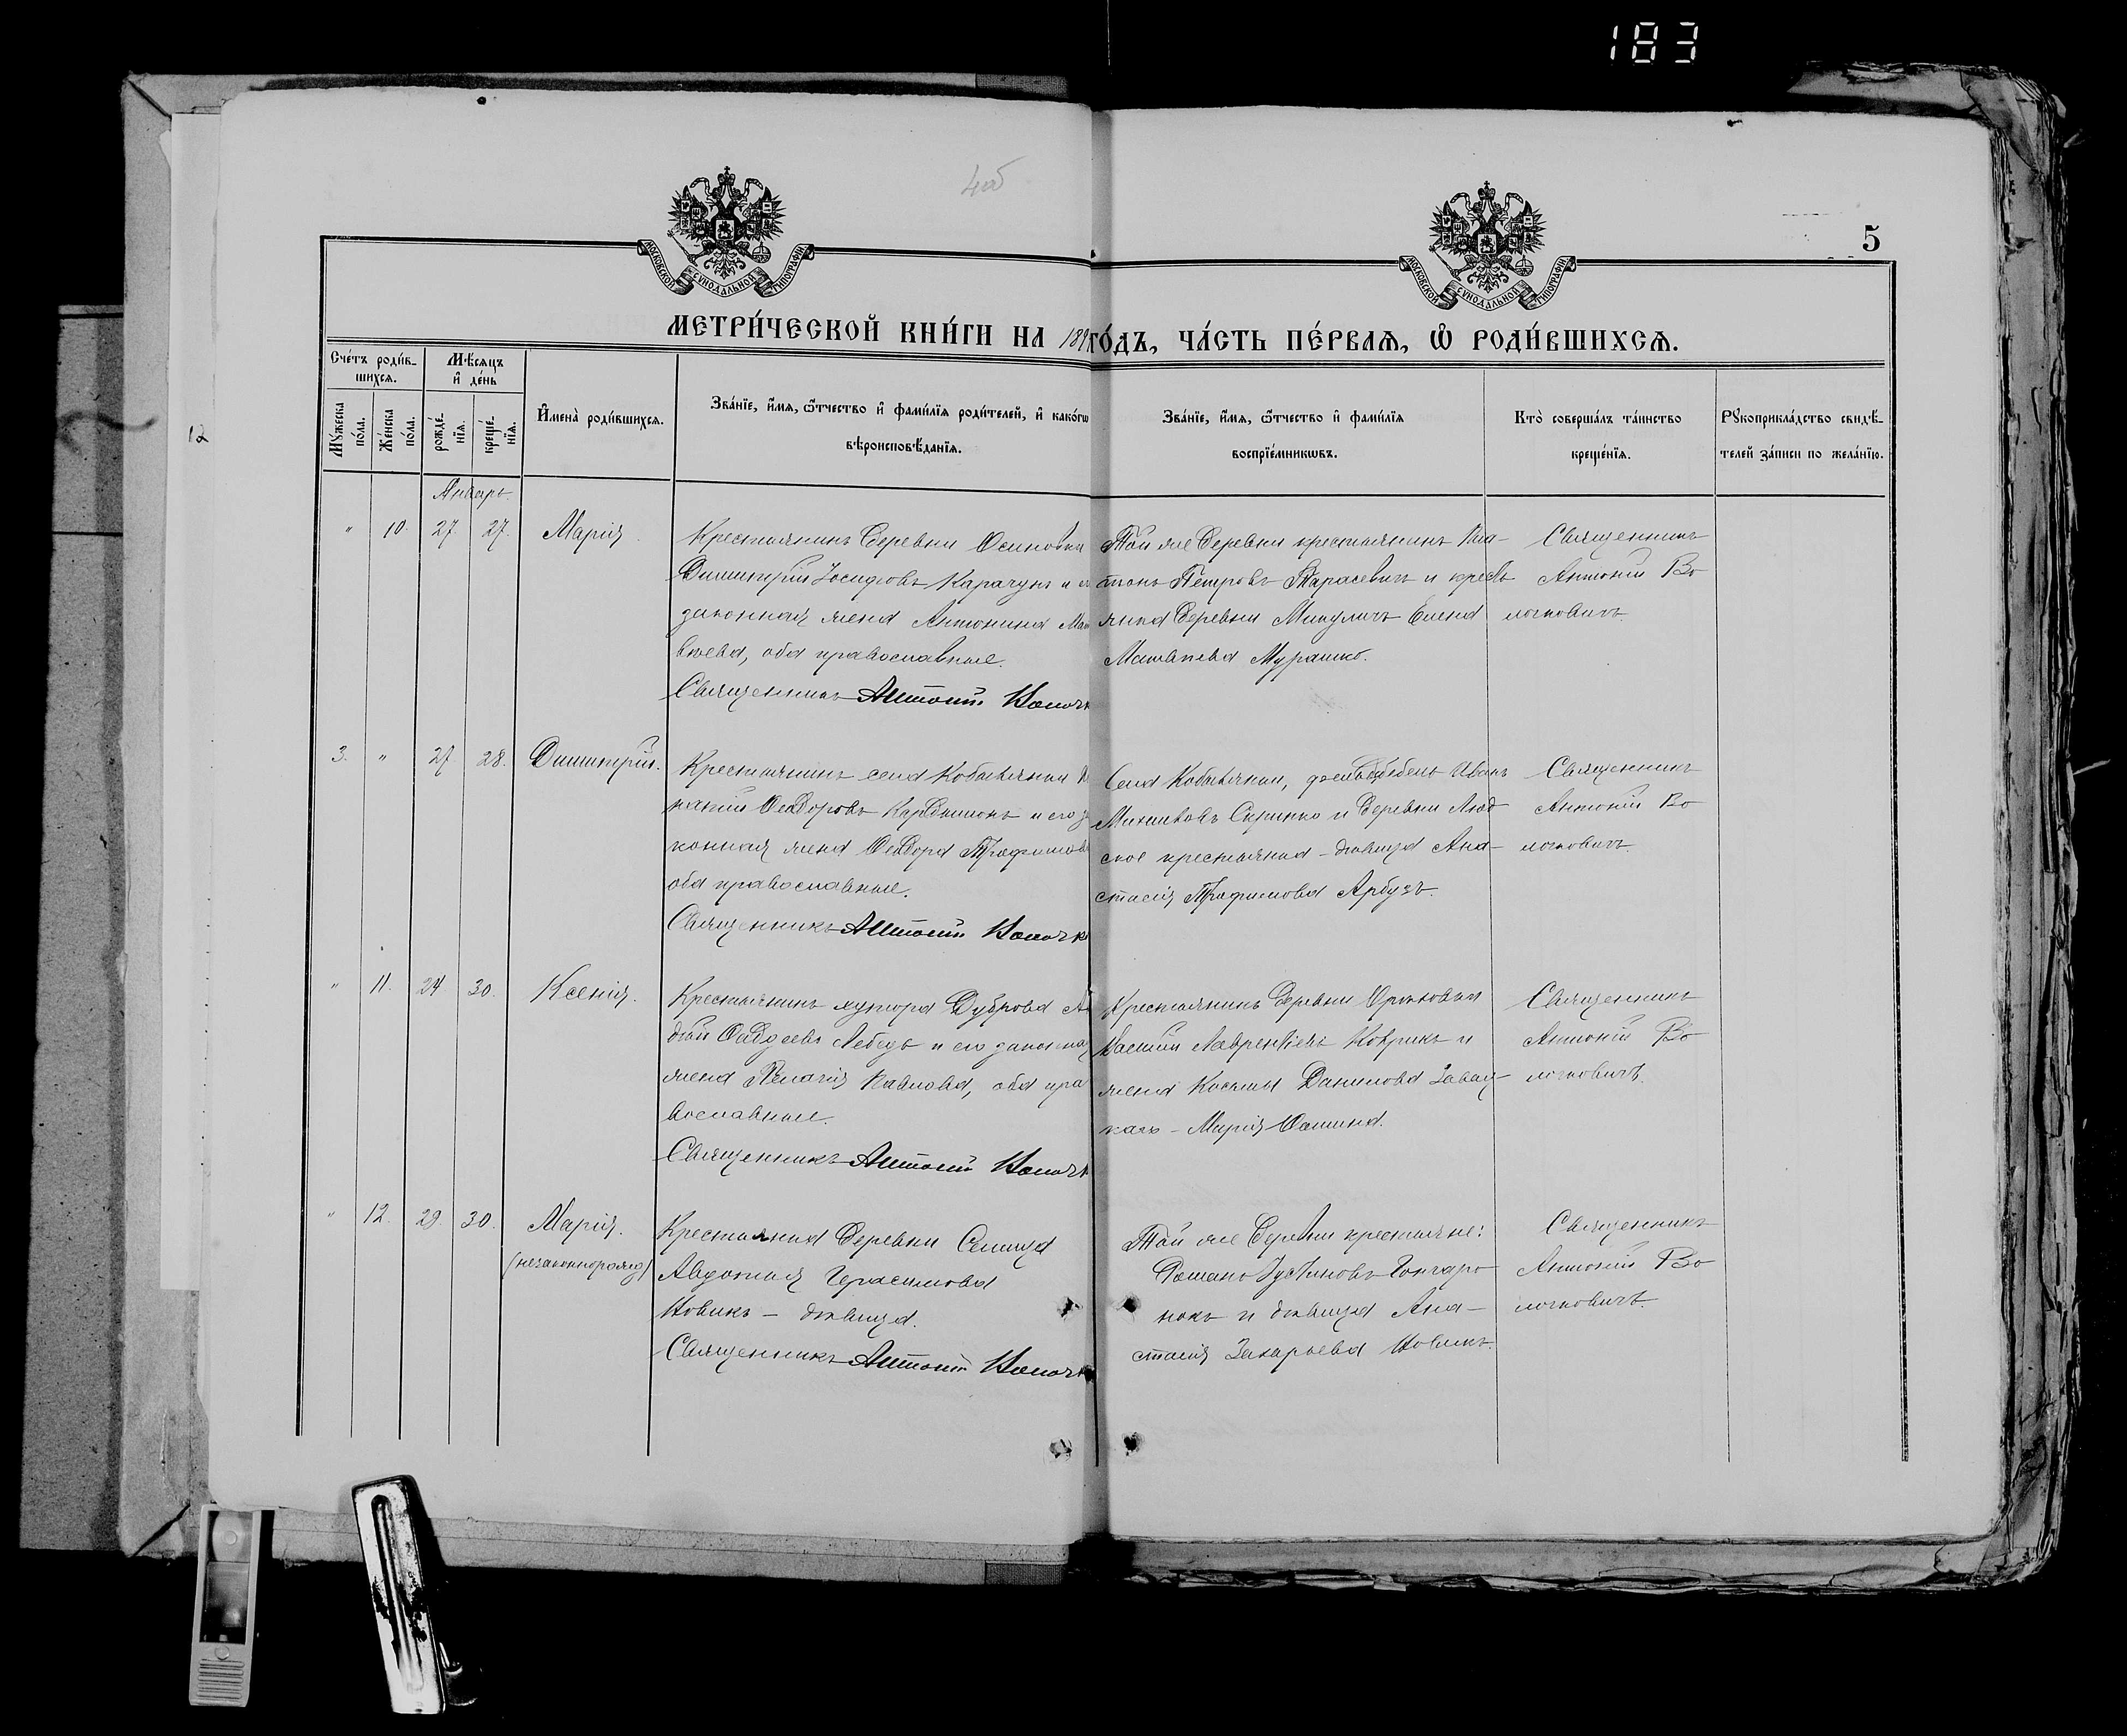 183
4об
5
12
МОСКОВСКОЙ СѴНОДАЛЬНОЙ ТИПОГРАФІИ
МОСКОВСКОЙ СѴНОДАЛЬНОЙ ТИПОГРАФІИ
МЕТРИ́ЧЕСКОЙ КНИ́ГИ НА 189 ГО́ДЪ, ЧА́СТЬ ПЕ́РВАѦ, Ѡ҆ РОДИ́ВШИХСѦ.
Сче́тъ роди́в-
шихсѧ.
Мѣ́сѧцъ
и҆ де́нь
Мꙋ́жеска
по́ла.
Же́нска
по́ла.
рожде́-
нїѧ.
креще́-
нїѧ.
И҆мена̀ роди́вшихсѧ.
Зва́нїе, и҆́мѧ, ѻ҆́тчество и҆ фами́лїѧ роди́телей, и҆ како́гѡ
вѣроисповѣ́данїѧ.
Зва́нїе, и҆́мѧ, ѻ҆́тчество и҆ фами́лїѧ
воспрїе́мникѡвъ.
Кто̀ соверша́лъ та́инство
креще́нїѧ.
Рꙋкоприкла́дство свидѣ́-
телей за́писи по жела́нїю.
Январь.
" 10. 27. 27. Марія.
Крестьянинъ деревни Осиповки
Димитрій Іосифовъ Карачунъ и
законная жена Антонина Мат
вѣева, оба православные.
Священникъ Антоній Волочк
Той же деревни крестьянинъ Пла-
тонъ Петровъ Тарасевичъ и кресть
янка деревни Микуличъ Елена
Матвѣева Мурашко.
Священникъ
Антоній Во
лочковичъ.
3. " 27 28. Димитрій.
Крестьянинъ села
Ѳеодоровъ и его за
конная жена Ѳеодора Трофимова
оба православные.
Священникъ Антоній Волочк
Села Иванъ
Михайловъ Скрипко и деревни Люд
ское крестьянка - дѣвица Ана-
стасія Трофимова Арбузъ.
Священникъ
Антоній Во
лочковичъ.
" 11. 24 30. Ксенія.
Крестьянинъ хутора Дуброва Ав
дѣй Лебедь и его законная
жена Пелагія Павлова, оба пра
вославные.
Священникъ Антоній Волочк
Крестьянинъ деревни
Василій Лаврентіевъ Ковликъ и
жена Космы Данилова
Марія Ѳомина.
Священникъ
Антоній Во
лочковичъ.
" 12. 29. 30. Марія.
(незаконнорожд)
Крестьянка деревни Селища
Авдотья Герасимова
Новикъ - дѣвица.
Священникъ Антоній Волочк
Той же деревни крестьяне:
Романъ Іустиновъ Гончаро
нокъ и дѣвица Ана-
стасія Захарьева Новикъ.
Священникъ
Антоній Во
лочковичъ.